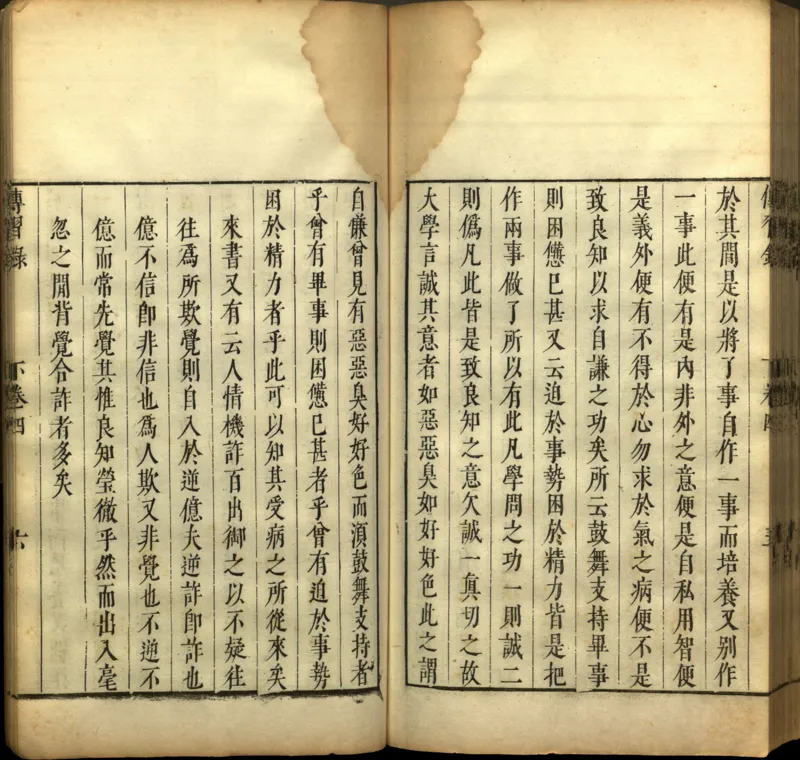 於其間是以將了事自作一事而培養又別作
一事此便有是內非外之意便是自私用智便
是義外便有不得於心勿求於氣之病便不是
致良知以求自謙之功矣所云鼓舞支持畢事
則困憊已甚又云迫於事勢困於精力皆是把
作兩事做了所以有此凡學問之功一則誠二
則偽凡此皆是致良知之意欠誠一真切之故
大學言誠其意者如惡惡臭如好好色此之謂
自慊曾見有惡惡臭好好色而須鼓舞支持者
乎曾有畢事則困憊已甚者乎曾有迫於事勢
困於精力者乎此可以知其受病之所從來矣
來書又有云人情機詐百出御之以不疑往
往為所欺覺則自入於逆億夫逆詐即詐也
億不信即非信也為人欺又非覺也不逆不
億而常先覺其惟良知瑩徹乎然而出入毫
忽之間背覺合詐者多矣
傳習錄
下卷四
六